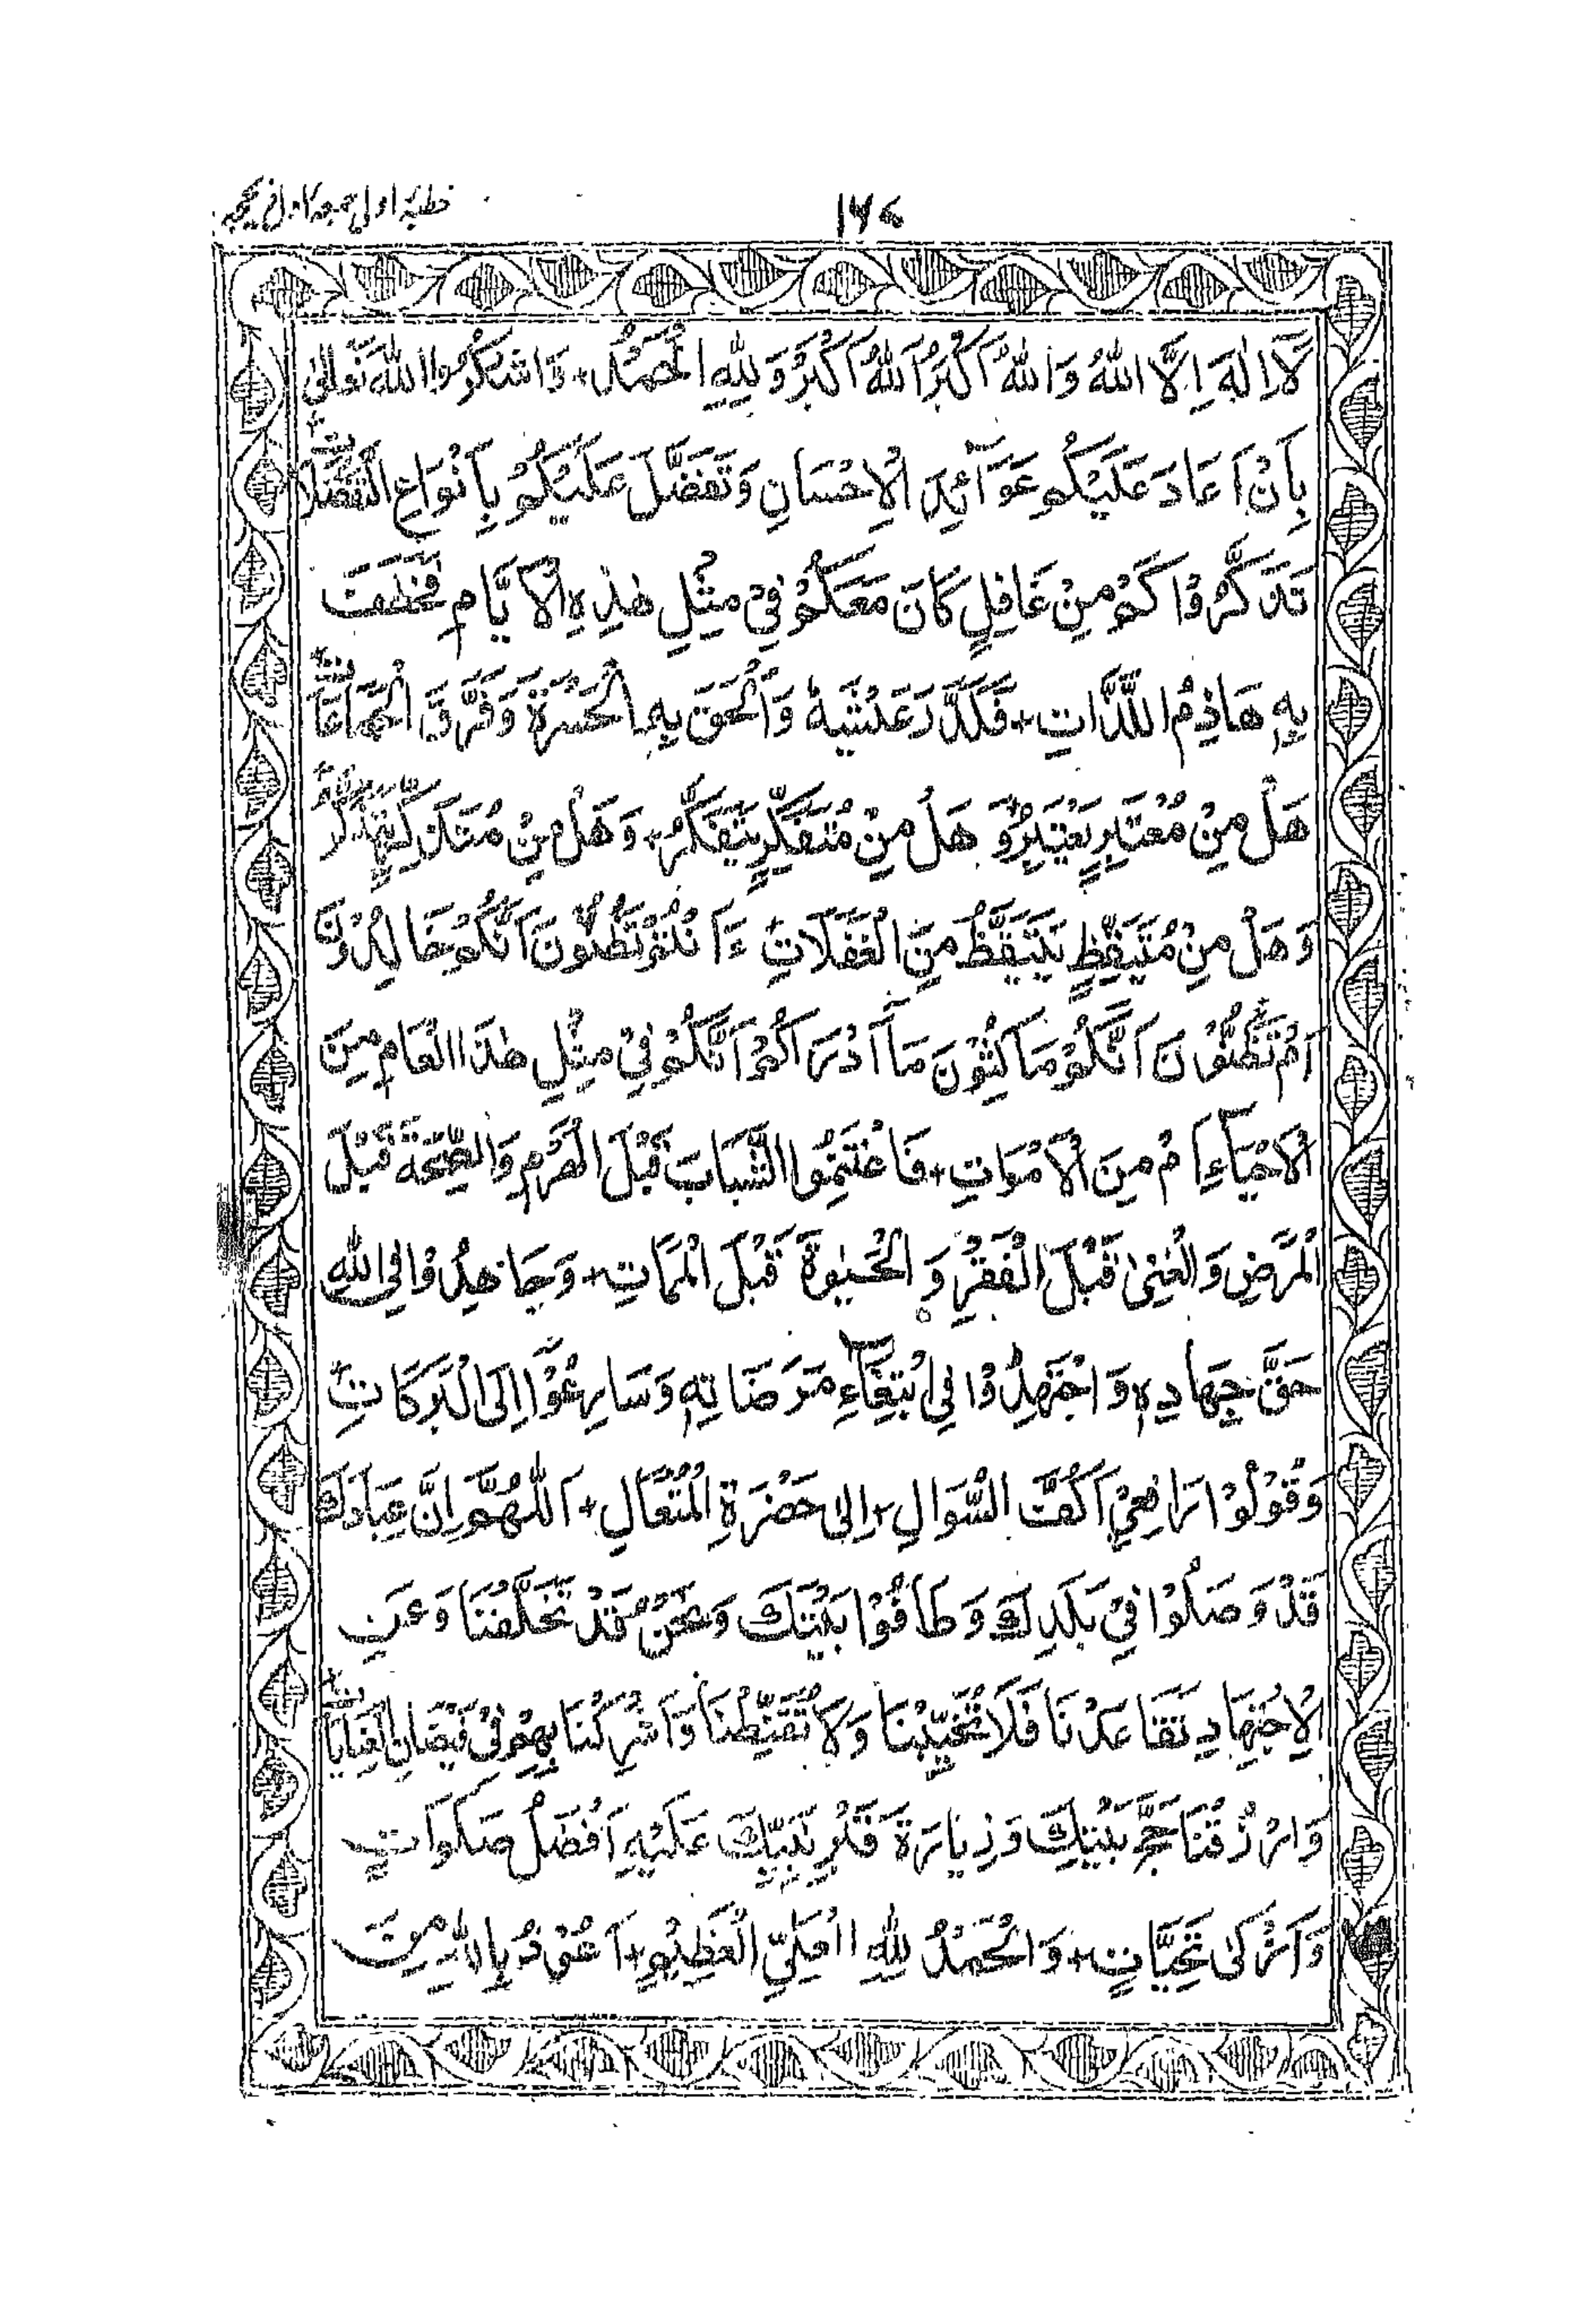 ١٧٤
خطبہ اولی جمعہ
لَا اِلٰهَ اِلَّا اللّٰهُ وَاللّٰهُ اَكْبَرُ اَللّٰهُ اَكْبَرُ وَلِلّٰهِ الْحَمْدُ + وَاشْكُرُوا اللّٰهَ تَعَالٰى
بِاَنْ اَعَادَ عَلَيْكُمْ عَوَآئِدَ الْاِحْسَانِ وَتَفَضَّلَ عَلَيْكُمْ بِاَنْوَاعِ التَّفَضُّلَاتِ +
تَذَكَّرُوْا كَمْ مِنْ غَافِلٍ كَانَ مَعَكُمْ فِيْ مِثْلِ هٰذِهِ الْاَيَّامِ فَخَطَفَتْ
بِهٖ هَاذِمُ اللَّذَّاتِ + فَكَدَّرَ عَيْشَهٗ وَاَلْحَقَ بِهِ الْحَسْرَةَ وَفَرَّقَ الْجَمَاعَاتِ +
هَلْ مِنْ مُعْتَبِرٍ يَعْتَبِرُ وَ هَلْ مِنْ مُتَفَكِّرٍ يَتَفَكَّرُ + وَهَلْ مِنْ مُتَذَكِّرٍ يَتَذَكَّرُ +
وَهَلْ مِنْ مُتَيَقِّظٍ يَتَيَقَّظُ مِنَ الْغَفَلَاتِ ءَاَنْتُمْ تَظُنُّوْنَ اَنَّكُمْ خَالِدُوْنَ
اَمْ تَظُنُّوْنَ اَنَّكُمْ مَاكِثُوْنَ مَآ اَدْرَاكُمْ اَنَّكُمْ فِيْ مِثْلِ هٰذَا الْعَامِ مِنَ
الْاَحْيَآءِ اَمْ مِنَ الْاَمْوَاتِ + فَاغْتَنِمُوا الشَّبَابَ قَبْلَ الْهَرَمِ وَالصِّحَّةَ قَبْلَ
الْمَرَضِ وَالْغِنٰى قَبْلَ الْفَقْرِ وَ الْحَيٰوةَ قَبْلَ الْمَمَاتِ + وَجَاهِدُوْا فِي اللّٰهِ
حَقَّ جِهَادِهٖ وَاجْتَهِدُوْا فِي ابْتِغَآءِ مَرَضَاتِهٖ وَسَارِعُوْٓا اِلَى الْبَرَكَاتِ
وَقُوْلُوْا رَافِعِيْ اَكُفَّ السُّوَالِ + اِلٰى حَضْرَةِ الْمُتَعَالِ + اَللّٰهُمَّ اِنَّ عِبَادَكَ
قَدْ وَصَلُوْا فِيْ بَلَدِكَ وَطَافُوْا بَيْتَكَ وَنَحْنُ قَدْ تَخَلَّفْنَا وَعَنِ
الْاِجْتِهَادِ تَقَاعَدْنَا فَلَا تُخَيِّبْنَا وَلَا تُقَنِّطْنَا وَاَشْرِكْنَا بِهِمْ فِيْ فَيْضَانِ الْعِنَايَاتِ +
وَارْزُقْنَا حَجَّ بَيْتِكَ وَزِيَارَةَ قَبْرِ نَبِيِّكَ عَلَيْهِ اَفْضَلُ صَلَوَاتٍ
وَاَزْكٰى تَحِيَّاتٍ + وَالْحَمْدُ لِلّٰهِ الْعَلِيِّ الْعَظِيْمِ + اَعُوْذُ بِاللّٰهِ مِنَ